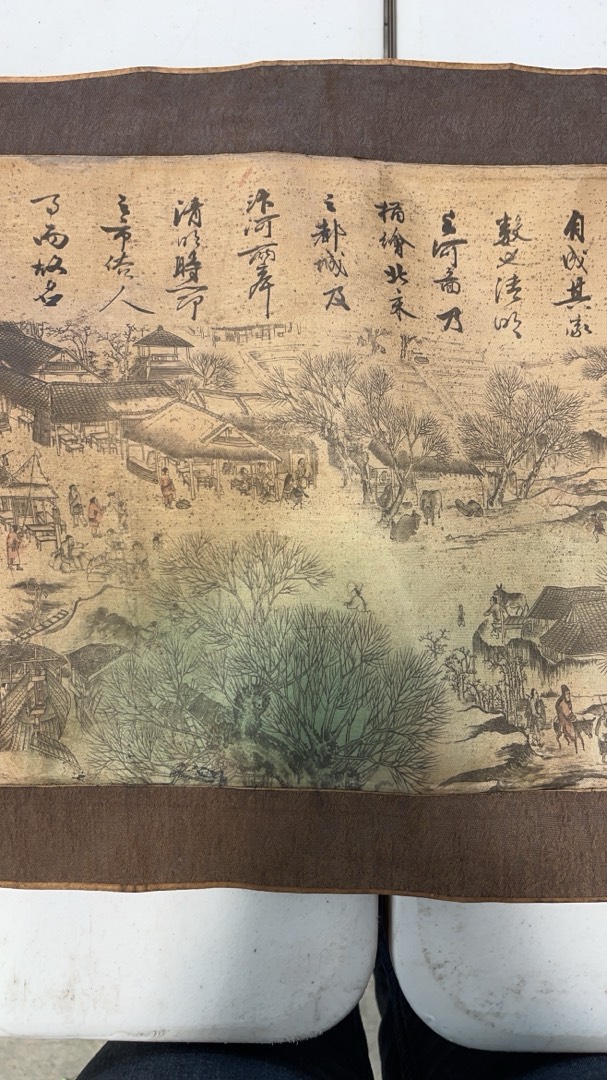 自成其家
数也清明
上河啚乃
描繪北宋
之都城及
汴河兩岸
清明時節
之市俗人
而故名